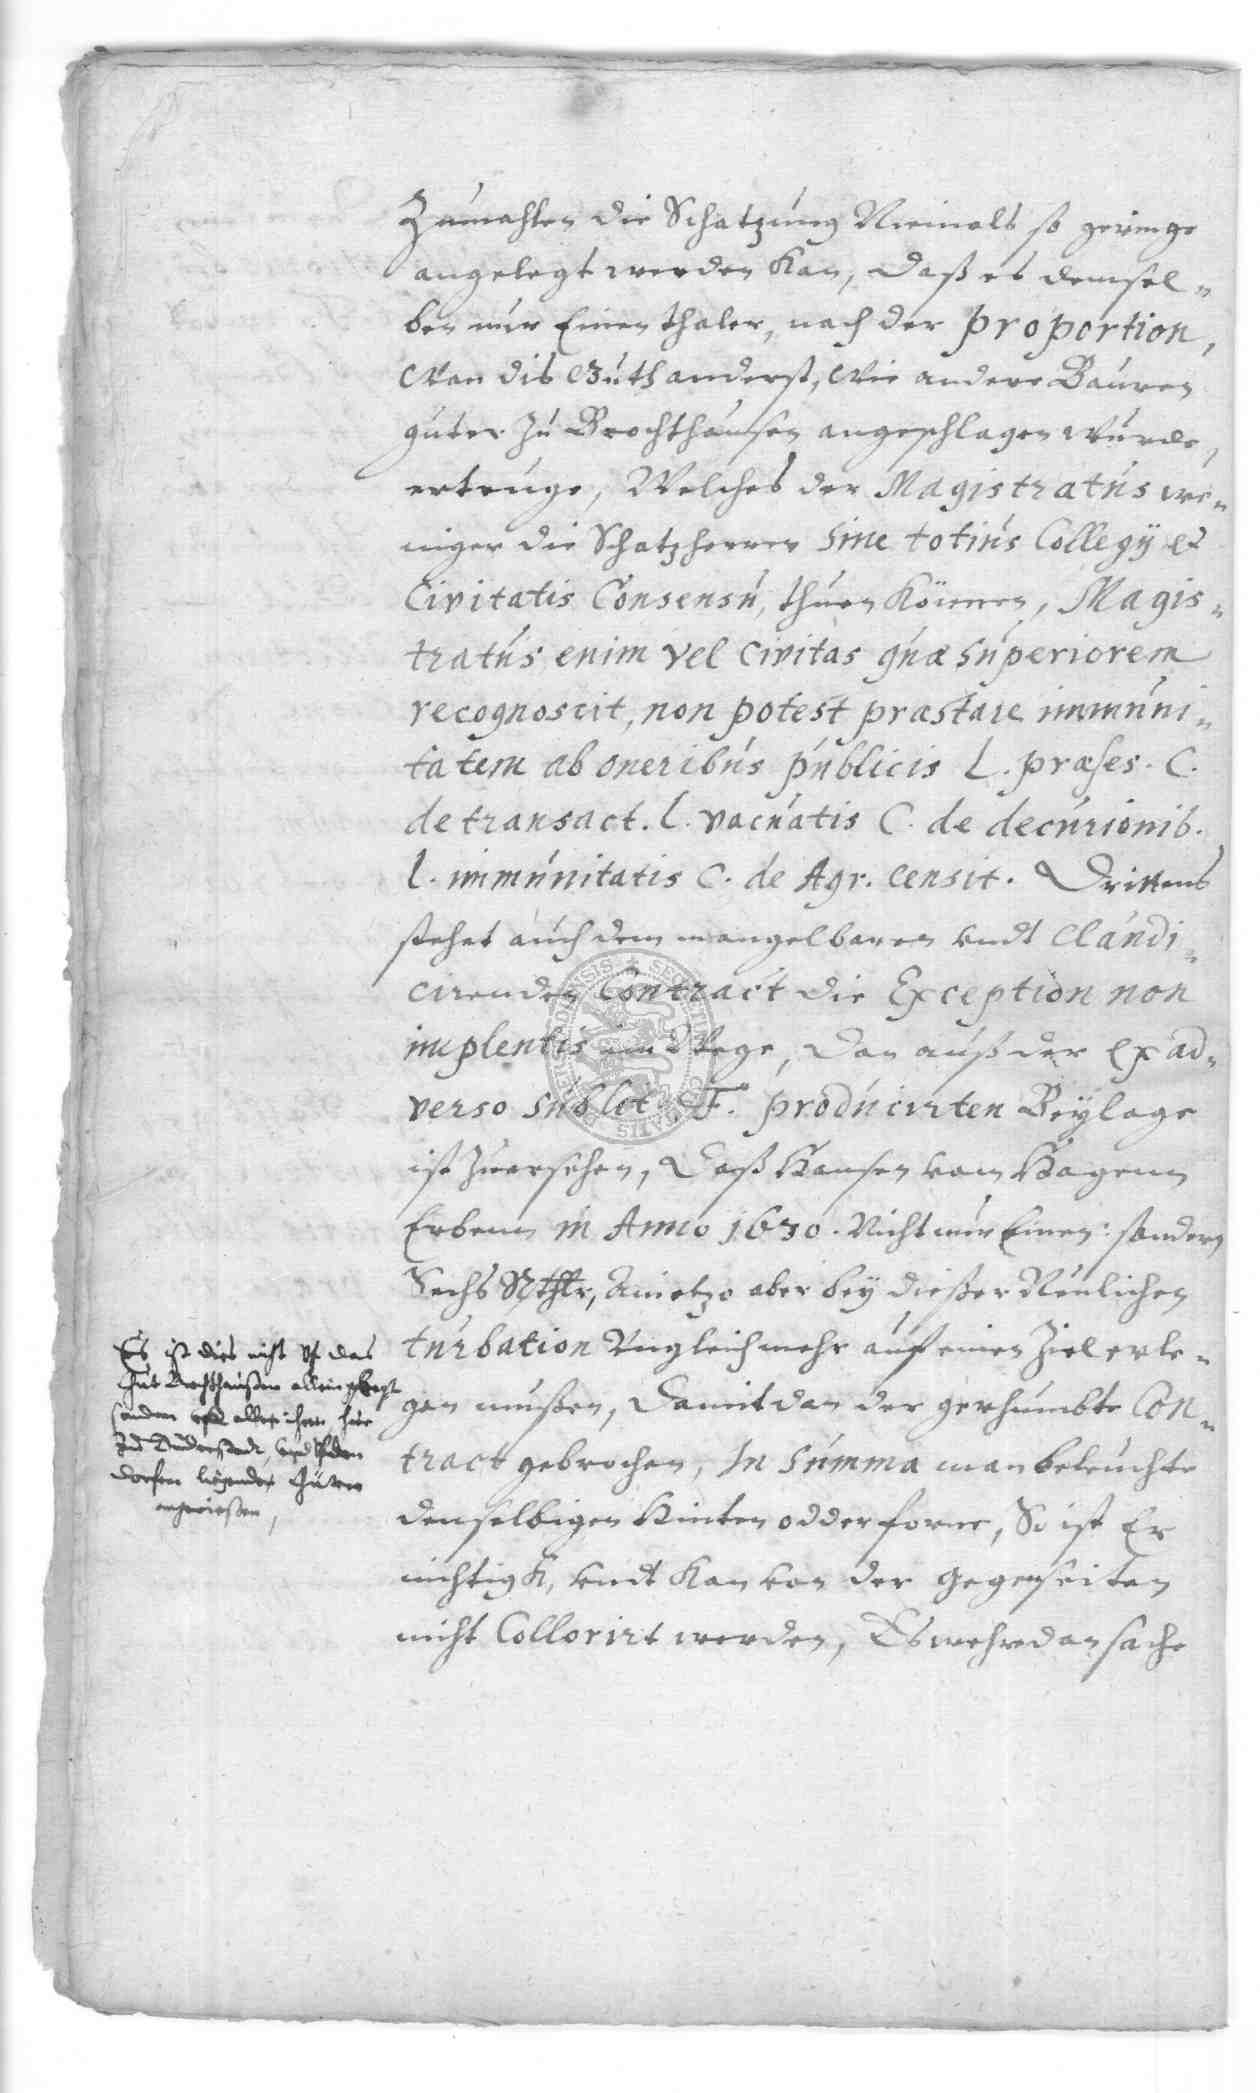 Zumahlen die Schatzung Niemals so geringe
angelegt werden kan, daß es demsel-
ben nur Einen thaler, nach der proportion,
Wan dis Guth anderst, wie andere Bauren
guter zu Brochthausen angeschlagen wurde,
ertruge, Welches der Magistratus we-
niger die Schatzherren sine totius Collegij et
Civitatis Consensu, thuen können, Magis-
tratus enim vel civitas quæ superiorem
recognoscit, non potest præstare immuni-
tatem ab oneribus publicis L. præses. C.
de transact. l. vacuatis C. de decurionib.
l. immunitatis C. de Agr. censit. Drittens
stehet auch dem mangelbaren undt claudi-
cirenden Contract die Exception non
implentis im Wege, dan auß der ex ad-
verso sub lit. F. producirten Beylage
ist zuersehen, daß Hansen vom Hagenn
Erbenn in Anno 1630. Nicht nur Einen: sondern
Sechs Rthlr, Anietzo aber bey dießer Neulichen
turbation Ungleich mehr auf einen Ziel erle-
gen mußen, damit dan der gerhümbte Con-
tract gebrochen, In summa man beleuchte
denselbigen hinten odder forne, So ist Er
nichtigk, undt kan von der gegenseiten
nicht Collorirt werden, Es wehre dan sache
Es ist dies nicht uf das
Gut Brochthaußen allein gelegt
sondern uff alle ihre hier
zu Duderstadt, und uf den
Dorfen liegende Güter
angewießen,